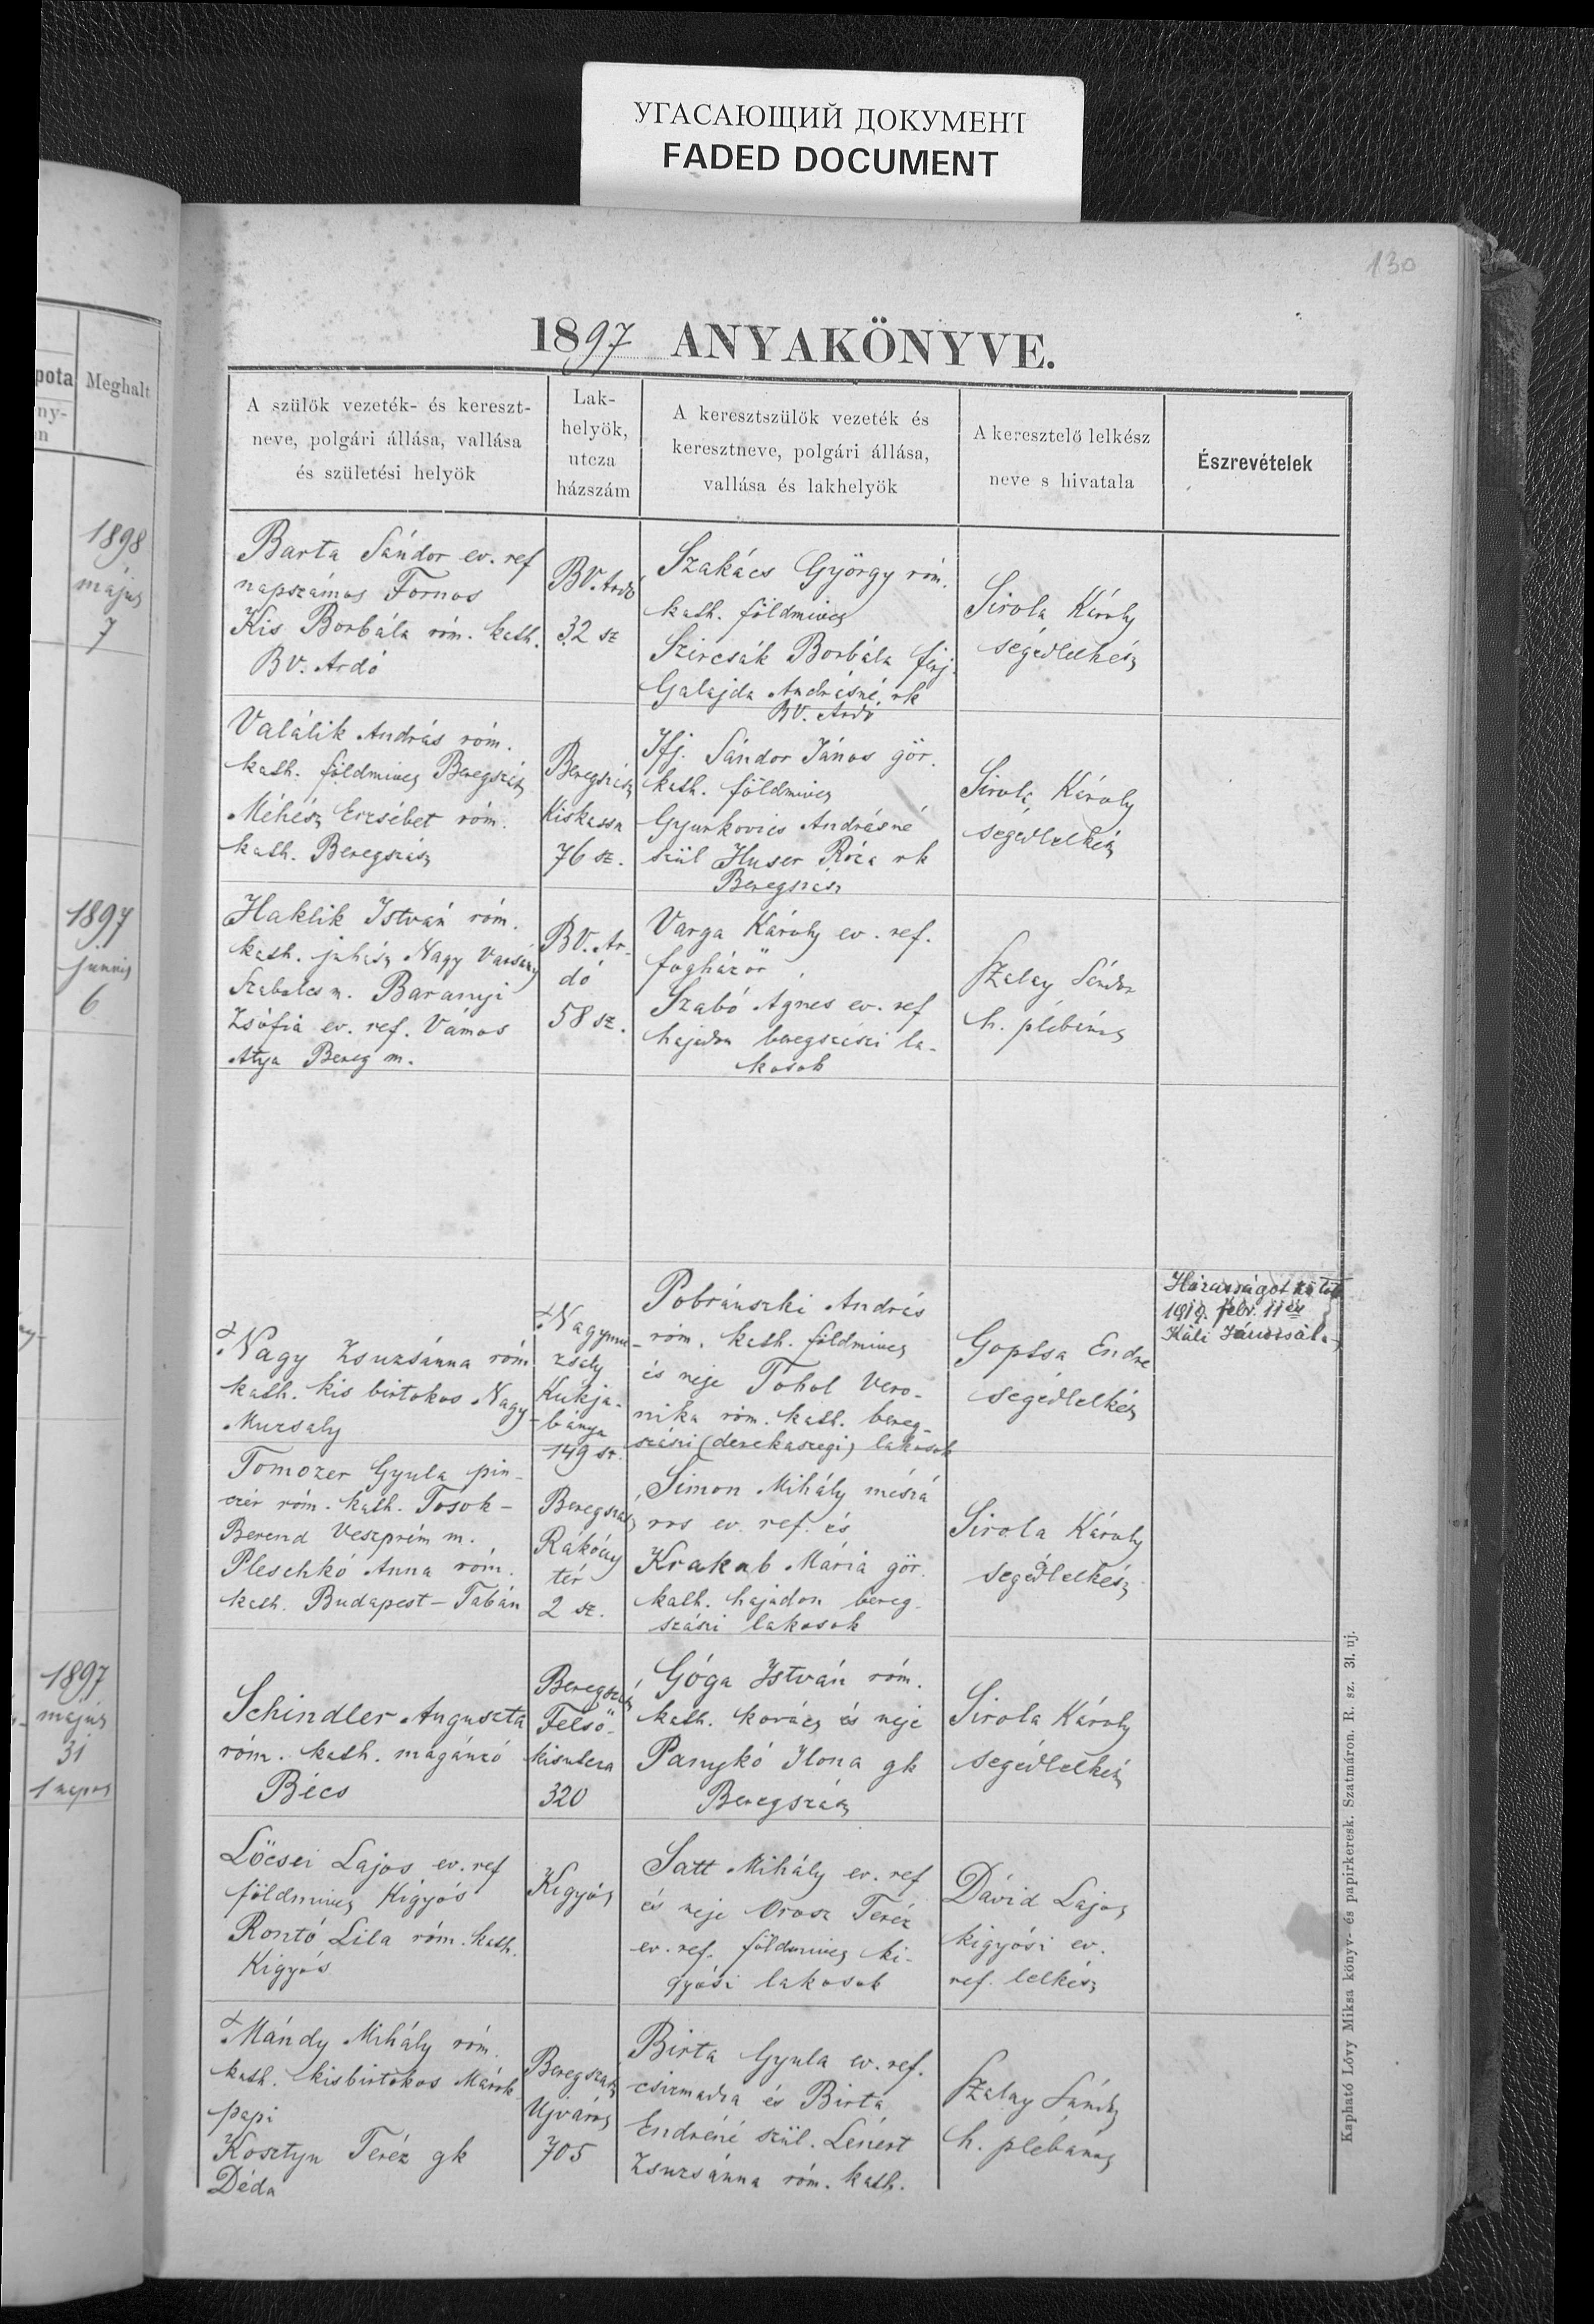 УГАСАЮЩИЙ ДОКУМЕНТ
FADED DOCUMENT
130
1897 ANYAKÖNYVE.
pota
ny-
en
Meghalt
1898
május
7
1897
junius
6
1897
május
31
1 napos
A szülök vezeték- és kereszt-
neve, polgári állása, vallása
és születési helyök
Lak-
helyök,
utcza
házszám
A keresztszülök vezeték és
keresztneve, polgári állása,
vallása és lakhelyök
A keresztelő lelkész
neve s hivatala
Észrevételek
Barta Sándor ev. ref
napszámos Fornos
Kis Borbála róm. kath.
BV. Ardó
BV. Ardó
32 sz
Szakács György róm.
kath. földmives
Szircsák Borbála férj.
Galajda Andrásné rk
BV. Ardó
Sirola Károly
segédlelkész
Valálik András róm.
kath. földmives Beregszász
Méhész Erzsébet róm.
kath. Beregszász
Beregszász
Kiskassa
76 sz.
Ifj. Sándor János gör.
kath. földmives
Gyurkovics Andrásné
szül Huser Róza rk
Beregszász
Sirola Károly
segédlelkész
Haklik István róm.
kath. juhász Nagy Varsány
Szabolcs m. Baranyi
Zsófia ev. ref. Vámos
Atya Bereg m.
BV. Ar-
dó
58 sz.
Varga Károly ev. ref.
fogházőr
Szabó Agnes ev. ref
hajadon beregszászi la-
kosok
Szalay Sándor
h. plébános
Nagy Zsuzsánna róm
kath. kis birtokos Nagy-
Muzsaly
Nagymu-
zsaly
Kukja-
bánya
149 sz.
Pobránszki András
róm. kath. földmives
és neje Tohol Vero-
nika róm. kath. bereg-
szászi (derekaszegi) lakosok
Gopsa Endre
segédlelkész
Házasságot kötött
1919. febr. 11 én
Káli Jánossal
Tomozer Gyula pin-
czér róm. kath. Tosok-
Berend Veszprém m.
Pleschkó Anna róm.
kath. Budapest-Tabán
Beregszász
Rákóczy
tér
2 sz.
Simon Mihály mészá
ros ev. ref. és
Krakab Mária gör.
kath. hajadon bereg-
szászi lakosok
Sirola Károly
segédlelkész
Schindler Auguszta
róm. kath. magánzó
Bécs
Beregszász
Felső-
kisutcza
320
Góga István róm.
kath. kovács és neje
Panykó Ilona gk
Beregszász
Sirola Károly
segédlelkész
Lőcsei Lajos ev. ref
földmives Kigyós
Rontó Lila róm. kath.
Kigyós
Kigyós
Satt Mihály ev. ref
és neje Orosz Teréz
ev. ref. földmives ki-
gyósi lakosok
Dávid Lajos
kigyósi ev.
ref. lelkész
Mándy Mihály róm.
kath. kisbirtokos Márok-
papi
Kosztyn Teréz gk
Déda
Beregszász
Ujváros
705
Birta Gyula ev. ref.
csizmadia és Birta
Endréné szül. Lénert
Zsuzsánna róm. kath.
Szalay Sándor
h. plebános
Kapható Lővy Miksa könyv- és papirkeresk. Szatmáron. R. sz. 31. uj.